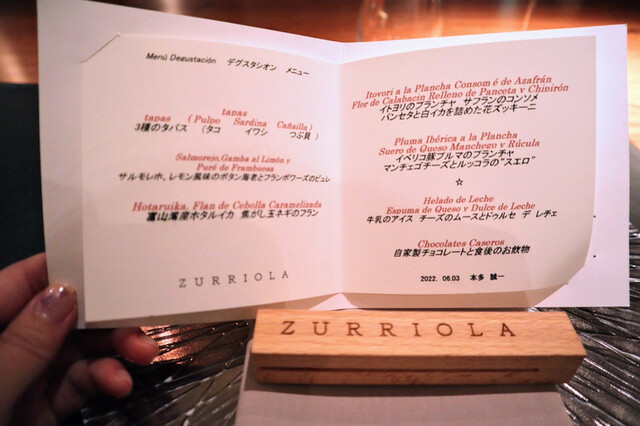 Menú Degustación デグスタシオン メニュー
tapas
tapas (Pulpo Sardina Cañailla)
3種のタパス (タコ イワシ つぶ貝)
Salmorejo, Gamba al Limón y
Puré de Frambuesa
サルモレホ、レモン風味のボタン海老とフランボワーズのピュレ
Hotaruika, Flan de Cebolla Caramelizada
富山湾産ホタルイカ 焦がし玉ネギのフラン
ZURRIOLA
Itoyori a la Plancha Consomé de Azafrán
Flor de Calabacin Relleno de Panceta y Chipirón
イトヨリのプランチャ サフランのコンソメ
パンセタと白イカを詰めた花ズッキーニ
Pluma Ibérica a la Plancha
Suero de Queso Manchego y Rúcula
イベリコ豚プルマのプランチャ
マンチェゴチーズとルッコラの"スエロ"
☆
Helado de Leche
Espuma de Queso y Dulce de Leche
牛乳のアイス チーズのムースとドゥルセ デ レチェ
Chocolates Caseros
自家製チョコレートと食後のお飲物
2022. 06.03 本多 誠一
ZURRIOLA